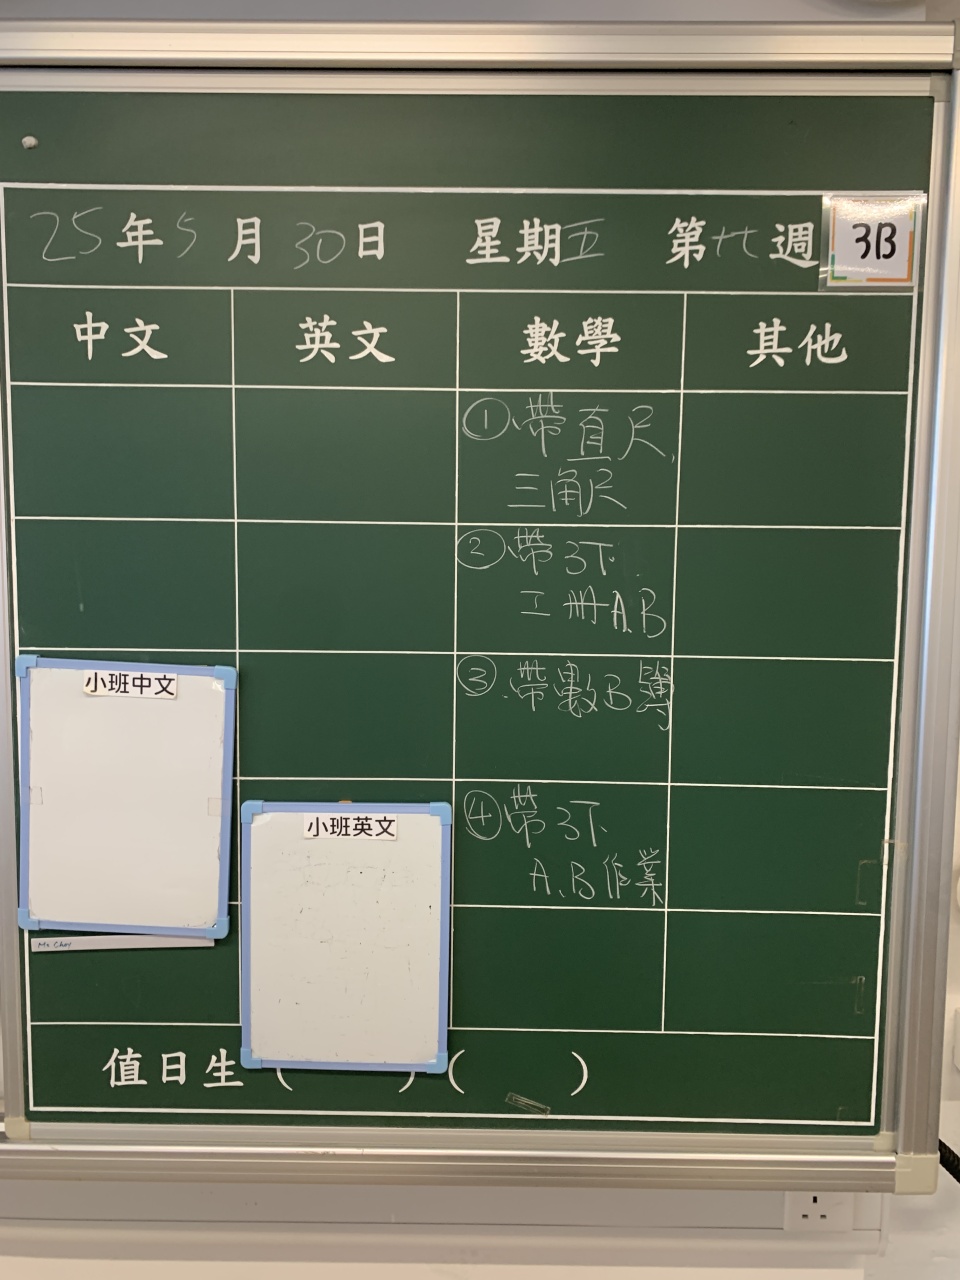 25年5月30日 星期五 第廿週 3B
中文 英文 數學 其他
①帶直尺,
三角尺
②帶3下
工冊A,B
③帶數B簿
④帶3下
A、B作業
小班中文
小班英文
值日生 ( ) ( )